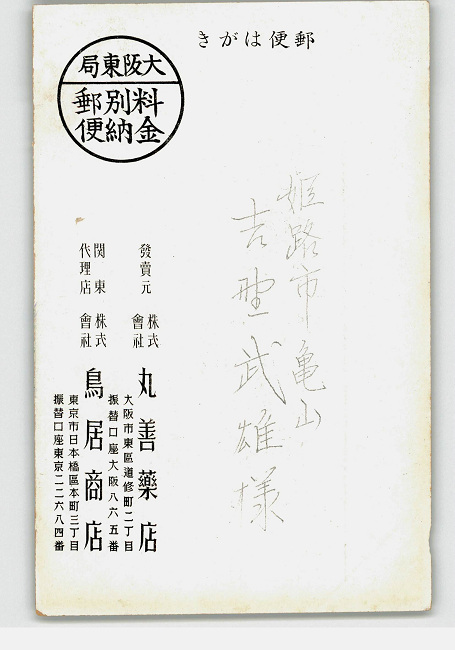 郵便はがき
大阪東局
料金
別納
郵便
姫路市亀山
吉野武雄様
發賣元 株式會社 丸善藥店
大阪市東區道修町二丁目
振替口座大阪八六五番
関東代理店 株式會社 鳥居商店
東京市日本橋區本町三丁目
振替口座東京二二六八四番